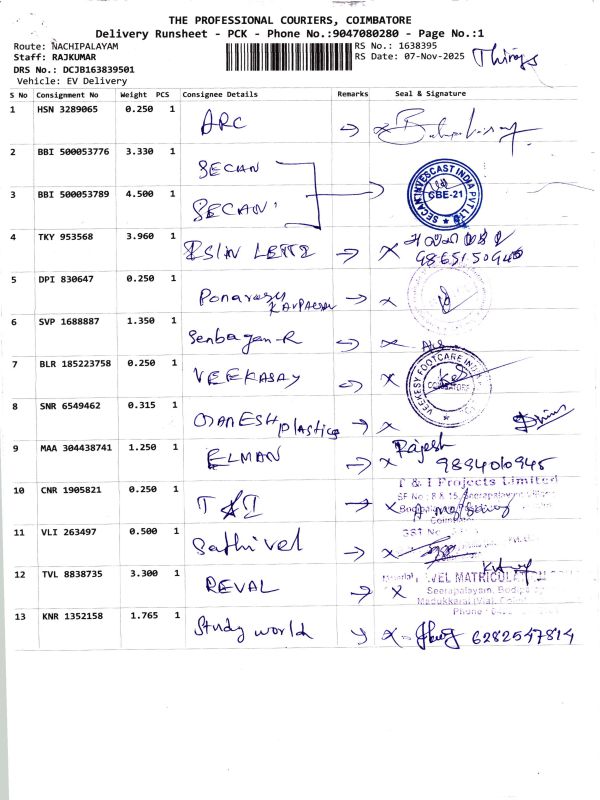 THE PROFESSIONAL COURIERS, COIMBATORE
Delivery Runsheet - PCK - Phone No.:9047080280 - Page No.:1
Route: NACHIPALAYAM
RS No.: 1638395
Staff: RAJKUMAR
RS Date: 07-Nov-2025
Things
DRS No.: DCJB163839501
Vehicle: EV Delivery
S No Consignment No Weight PCS Consignee Details Remarks Seal & Signature
1 HSN 3289065 0.250 1 ARC
2 BBI 500053776 3.330 1 SECAN
3 BBI 500053789 4.500 1 SECAN
SECAN INVESCAST INDIA PVT LTD
CBE-21
4 TKY 953568 3.960 1
5 DPI 830647 0.250 1
6 SVP 1688887 1.350 1 Senbagan-R
7 BLR 185223758 0.250 1 VEEKASAY
VEEKESY FOOTCARE INDIA
COIMBATORE
8 SNR 6549462 0.315 1 MANESH plastics
9 MAA 304438741 1.250 1 ELMAN X Rajesh
9894010945
10 CNR 1905821 0.250 1 T & I X
T & I Projects Limited
11 VLI 263497 0.500 1 Sathivel
12 TVL 8838735 3.300 1 REVAL X
VEL MATRICULA
Seerapalayam, Bodip
Phone :
13 KNR 1352158 1.765 1 Study world X 6282547814